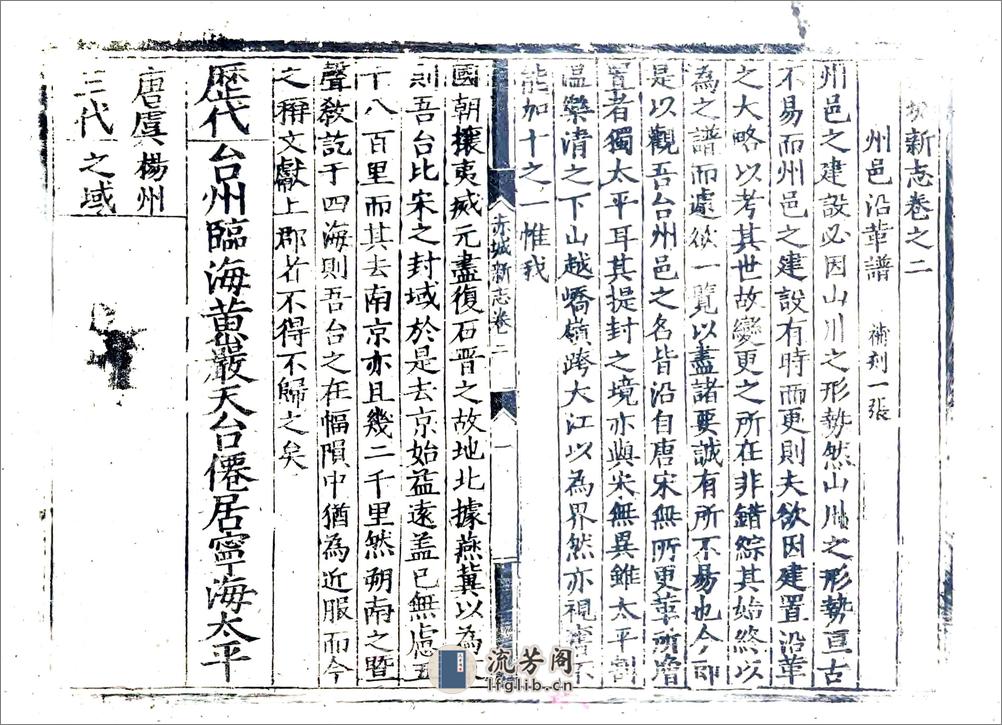 城新志卷之二
州邑沿革譜 補刻一張
州邑之建設必因山川之形勢然山川之形勢亘古
不易而州邑之建設有時而更則夫欲因建置沿革
之大略以考其世故變更之所在非錯綜其始終以
為之譜而遽欲一覽以盡諸要誠有所不易也今即
是以觀吾台州邑之名皆沿自唐宋無所更革所增
置者獨太平耳其提封之境亦與宋無異雖太平割
溫樂清之下山越嶠嶺跨大江以為界然亦視舊不
能加十之一惟我
赤城新志卷二 一
國朝攘夷烕元盡復石晉之故地北據燕冀以為
則吾台比宋之封域於是去京始益遠盖已無慮五
千八百里而其去南京亦且幾二千里然朔南之暨
聲敎訖于四海則吾台之在幅隕中猶為近服而今
之稱文獻上郡者不得不歸之矣
歷代 台州臨海黃巖天台僊居寧海太平
唐虞楊州
三代之域
流芳阁
lfglib.cn